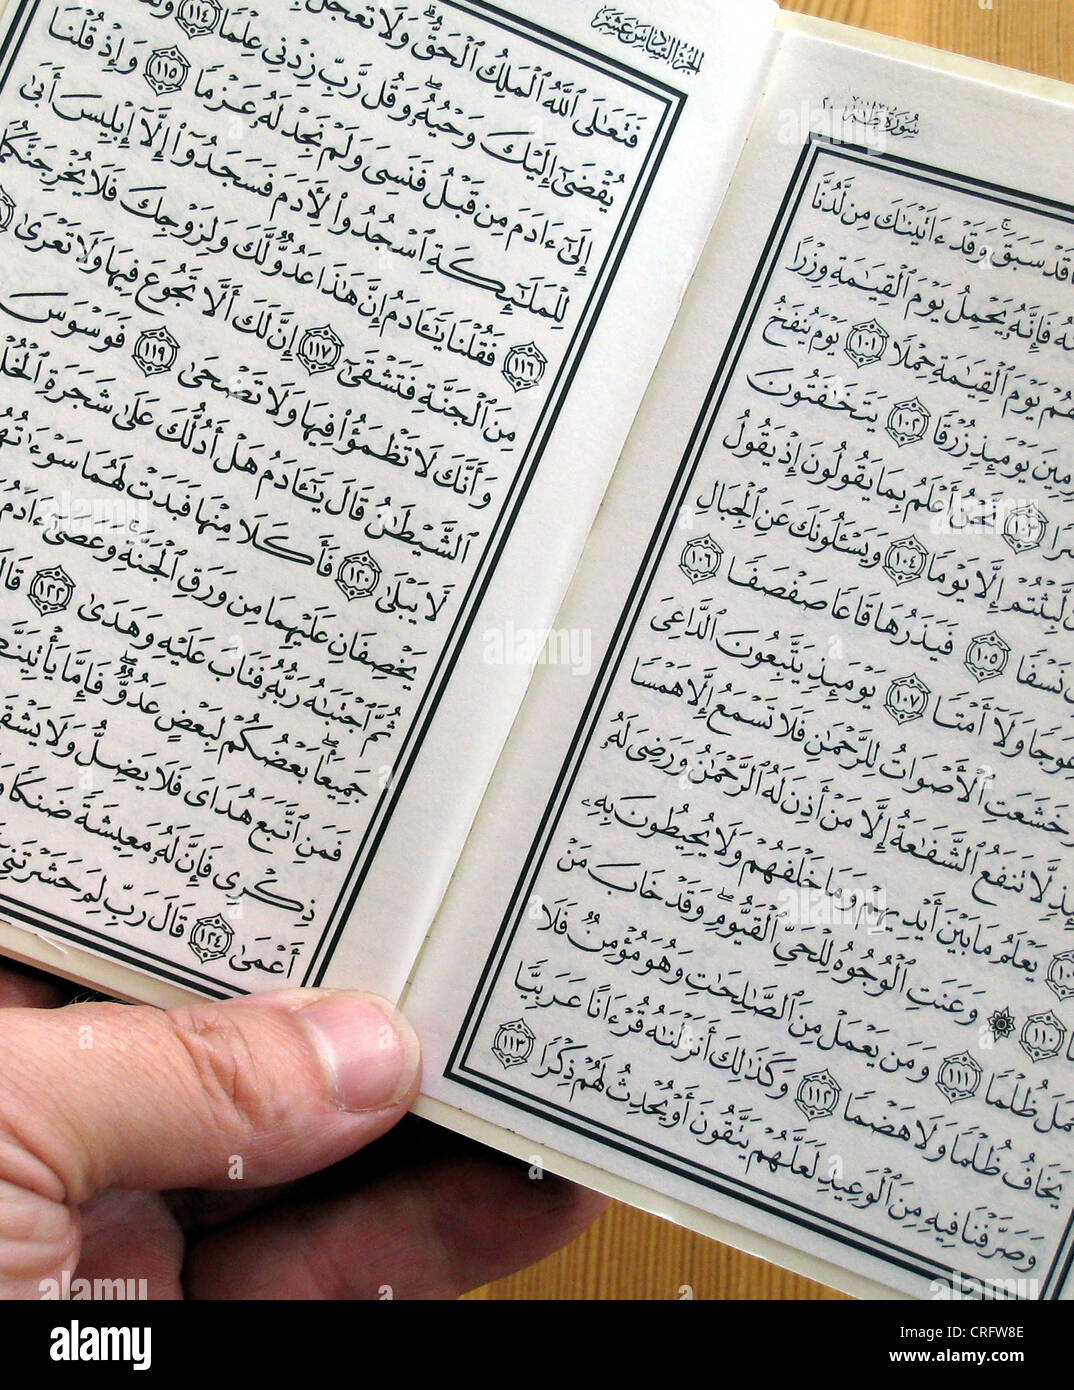 سُورَةُ طه ٢٠
قَدْ سَبَقَ وَقَدْ ءَاتَيْنَٰكَ مِن لَّدُنَّا
فَإِنَّهُۥ يَحْمِلُ يَوْمَ ٱلْقِيَٰمَةِ وِزْرًا
يَوْمَ ٱلْقِيَٰمَةِ حِمْلًا ١٠١ يَوْمَ يُنفَخُ
يَوْمَئِذٍ زُرْقًا ١٠٢ يَتَخَٰفَتُونَ
١٠٣ نَّحْنُ أَعْلَمُ بِمَا يَقُولُونَ إِذْ يَقُولُ
لَّبِثْتُمْ إِلَّا يَوْمًا ١٠٤ وَيَسْـَٔلُونَكَ عَنِ ٱلْجِبَالِ
نَسْفًا ١٠٥ فَيَذَرُهَا قَاعًا صَفْصَفًا ١٠٦
عِوَجًا وَلَآ أَمْتًا ١٠٧ يَوْمَئِذٍ يَتَّبِعُونَ ٱلدَّاعِىَ
وَخَشَعَتِ ٱلْأَصْوَاتُ لِلرَّحْمَٰنِ فَلَا تَسْمَعُ إِلَّا هَمْسًا
لَّا تَنفَعُ ٱلشَّفَٰعَةُ إِلَّا مَنْ أَذِنَ لَهُ ٱلرَّحْمَٰنُ وَرَضِىَ لَهُۥ
يَعْلَمُ مَا بَيْنَ أَيْدِيهِمْ وَمَا خَلْفَهُمْ وَلَا يُحِيطُونَ بِهِۦ
١١٠ ۞ وَعَنَتِ ٱلْوُجُوهُ لِلْحَىِّ ٱلْقَيُّومِ ۖ وَقَدْ خَابَ مَنْ
حَمَلَ ظُلْمًا ١١١ وَمَن يَعْمَلْ مِنَ ٱلصَّٰلِحَٰتِ وَهُوَ مُؤْمِنٌ فَلَا
يَخَافُ ظُلْمًا وَلَا هَضْمًا ١١٢ وَكَذَٰلِكَ أَنزَلْنَٰهُ قُرْءَانًا عَرَبِيًّا
وَصَرَّفْنَا فِيهِ مِنَ ٱلْوَعِيدِ لَعَلَّهُمْ يَتَّقُونَ أَوْ يُحْدِثُ لَهُمْ ذِكْرًا ١١٣
الجزء السادس عشر
فَتَعَٰلَى ٱللَّهُ ٱلْمَلِكُ ٱلْحَقُّ ۗ وَلَا تَعْجَلْ
يُقْضَىٰٓ إِلَيْكَ وَحْيُهُۥ ۖ وَقُل رَّبِّ زِدْنِى عِلْمًا ١١٤
إِلَىٰٓ ءَادَمَ مِن قَبْلُ فَنَسِىَ وَلَمْ نَجِدْ لَهُۥ عَزْمًا ١١٥ وَإِذْ قُلْنَا
لِلْمَلَٰٓئِكَةِ ٱسْجُدُوا۟ لِءَادَمَ فَسَجَدُوٓا۟ إِلَّآ إِبْلِيسَ أَبَىٰ
١١٦ فَقُلْنَا يَٰٓـَٔادَمُ إِنَّ هَٰذَا عَدُوٌّ لَّكَ وَلِزَوْجِكَ فَلَا يُخْرِجَنَّكُمَا
مِنَ ٱلْجَنَّةِ فَتَشْقَىٰٓ ١١٧ إِنَّ لَكَ أَلَّا تَجُوعَ فِيهَا وَلَا تَعْرَىٰ
وَأَنَّكَ لَا تَظْمَؤُا۟ فِيهَا وَلَا تَضْحَىٰ ١١٩ فَوَسْوَسَ
ٱلشَّيْطَٰنُ قَالَ يَٰٓـَٔادَمُ هَلْ أَدُلُّكَ عَلَىٰ شَجَرَةِ
لَّا يَبْلَىٰ ١٢٠ فَأَكَلَا مِنْهَا فَبَدَتْ لَهُمَا سَوْءَٰتُهُمَا
يَخْصِفَانِ عَلَيْهِمَا مِن وَرَقِ ٱلْجَنَّةِ ۚ وَعَصَىٰٓ ءَادَمُ
ثُمَّ ٱجْتَبَٰهُ رَبُّهُۥ فَتَابَ عَلَيْهِ وَهَدَىٰ ١٢٢ قَالَ
جَمِيعًۢا ۖ بَعْضُكُمْ لِبَعْضٍ عَدُوٌّ ۖ فَإِمَّا يَأْتِيَنَّكُم
فَمَنِ ٱتَّبَعَ هُدَاىَ فَلَا يَضِلُّ وَلَا يَشْقَىٰ
ذِكْرِى فَإِنَّ لَهُۥ مَعِيشَةً ضَنكًا
أَعْمَىٰ ١٢٤ قَالَ رَبِّ لِمَ حَشَرْتَنِىٓ
alamy
alamy
Image ID: CRFW8E
www.alamy.com